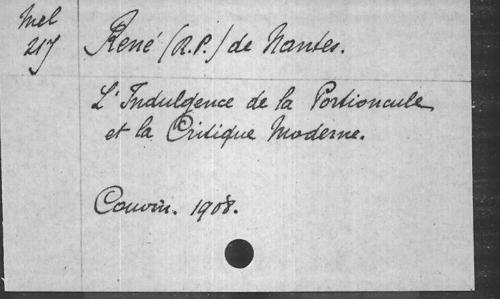 Mel
217
René (R.P.) de Nantes.
L'Indulgence de la Portioncule
et la Critique Moderne.
Couvin. 1908.